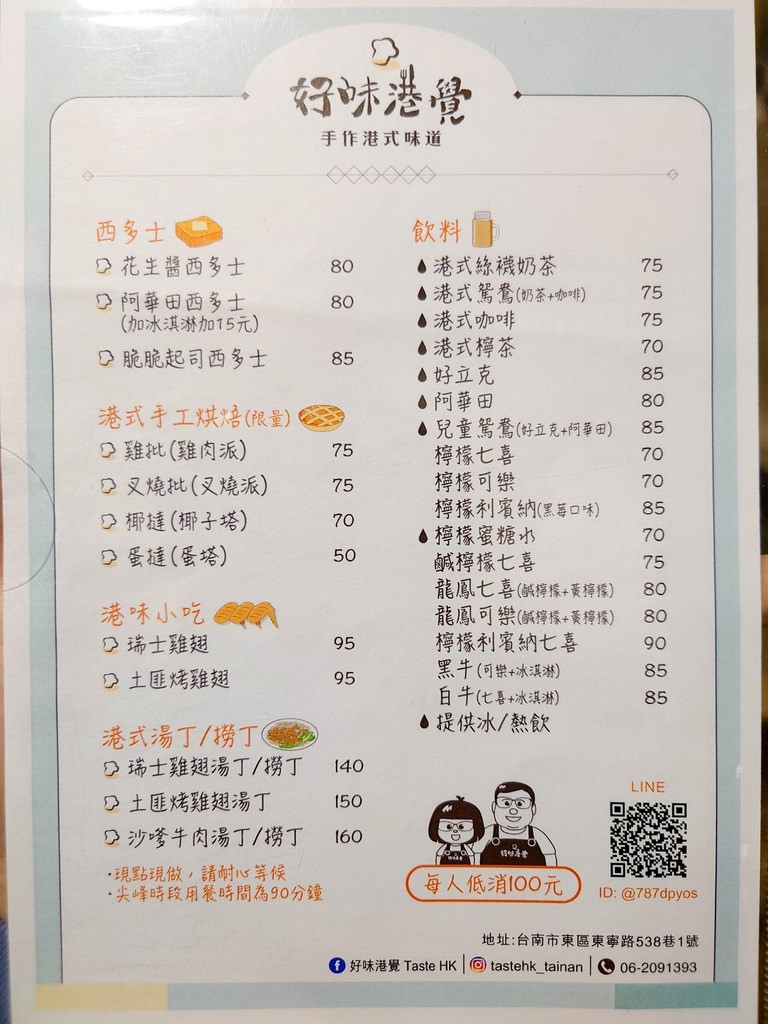 好味港覺
手作港式味道
西多士
花生醬西多士 80
阿華田西多士 80
(加冰淇淋加15元)
脆脆起司西多士 85
港式手工烘焙(限量)
雞批(雞肉派) 75
叉燒批(叉燒派) 75
椰撻(椰子塔) 70
蛋撻(蛋塔) 50
港味小吃
瑞士雞翅 95
土匪烤雞翅 95
港式湯丁/撈丁
瑞士雞翅湯丁/撈丁 140
土匪烤雞翅湯丁 150
沙嗲牛肉湯丁/撈丁 160
·現點現做，請耐心等候
·尖峰時段用餐時間為90分鐘
飲料
港式絲襪奶茶 75
港式鴛鴦(奶茶+咖啡) 75
港式咖啡 75
港式檸茶 70
好立克 85
阿華田 80
兒童鴛鴦(好立克+阿華田) 85
檸檬七喜 70
檸檬可樂 70
檸檬利賓納(黑莓口味) 85
檸檬蜜糖水 70
鹹檸檬七喜 75
龍鳳七喜(鹹檸檬+黃檸檬) 80
龍鳳可樂(鹹檸檬+黃檸檬) 80
檸檬利賓納七喜 90
黑牛(可樂+冰淇淋) 85
白牛(七喜+冰淇淋) 85
提供冰/熱飲
好味港覺
每人低消100元
LINE
ID: @787dpyos
地址:台南市東區東寧路538巷1號
好味港覺 Taste HK tastehk_tainan 06-2091393